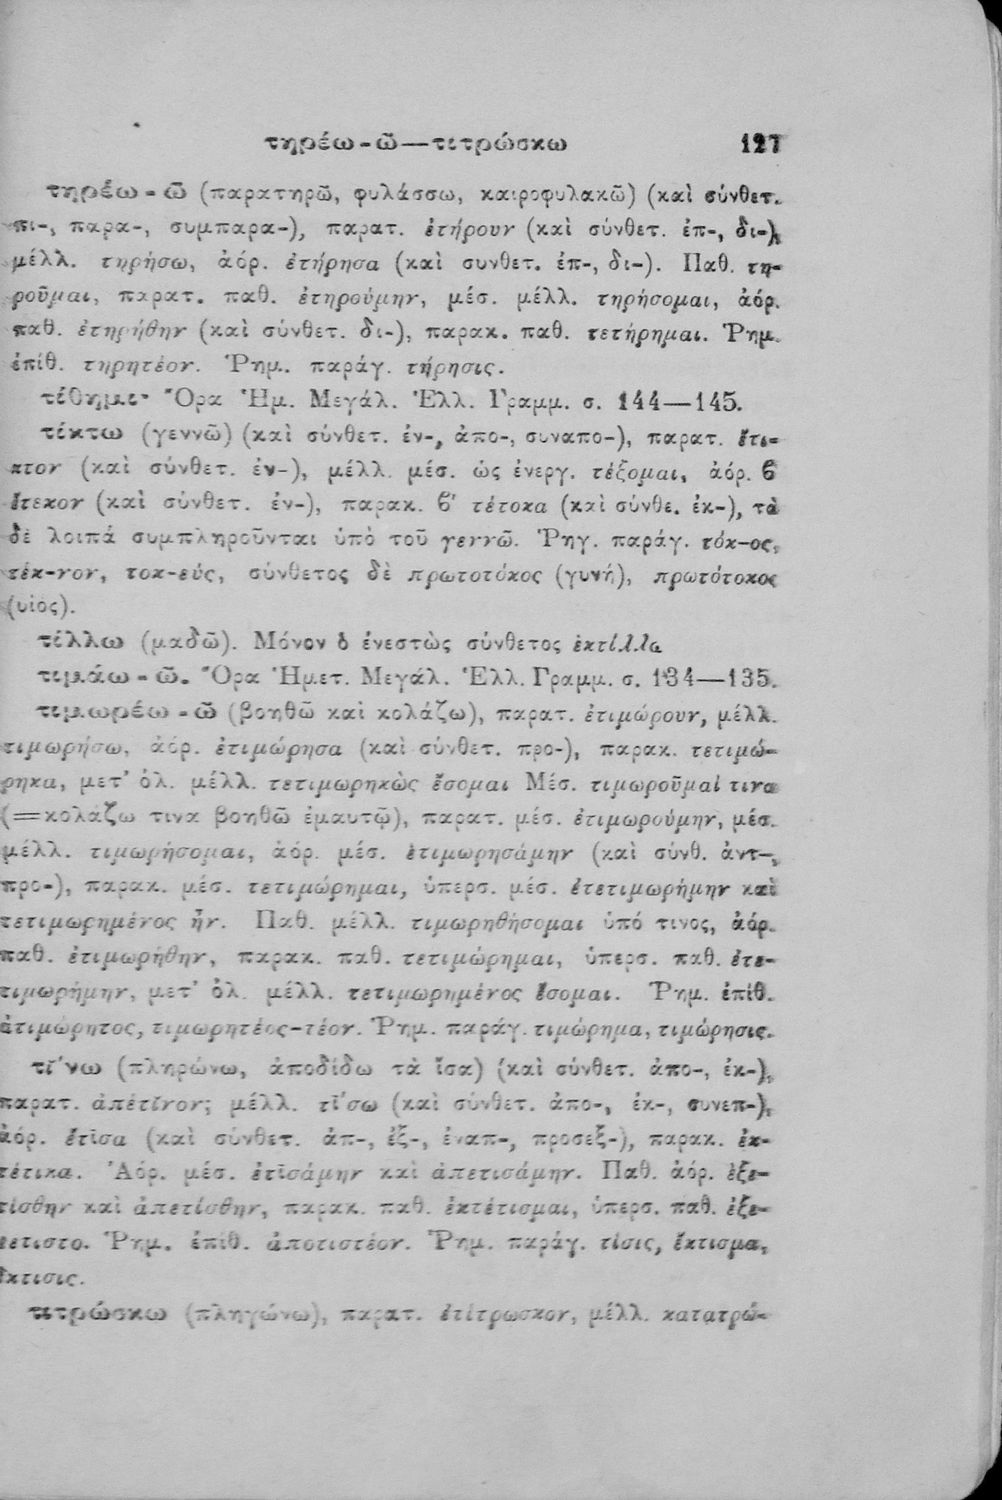 τηρέω-ῶ—τιτρώσκω 127
τηρέω-ῶ (παρατηρῶ, φυλάσσω, καιροφυλακῶ) (καὶ σύνθετ.
πι-, παρα-, συμπαρα-), παρατ. ἐτήρουν (καὶ σύνθετ. ἐπ-, δι-),
μέλλ. τηρήσω, ἀόρ. ἐτήρησα (καὶ συνθετ. ἐπ-, δι-). Παθ. τη-
ροῦμαι, παρατ. παθ. ἐτηρούμην, μέσ. μέλλ. τηρήσομαι, ἀόρ.
παθ. ἐτηρήθην (καὶ σύνθετ. δι-), παρακ. παθ. τετήρημαι. Ῥημ.
ἐπίθ. τηρητέον. Ῥημ. παράγ. τήρησις.
τίθημι· Ὅρα Ἡμ. Μεγάλ. Ἑλλ. Γραμμ. σ. 144—145.
τίκτω (γεννῶ) (καὶ σύνθετ. ἐν-, ἀπο-, συναπο-), παρατ. ἔτι-
κτον (καὶ σύνθετ. ἐν-), μέλλ. μέσ. ὡς ἐνεργ. τέξομαι, ἀόρ. ϐ
ἔτεκον (καὶ σύνθετ. ἐν-), παρακ. ϐ' τέτοκα (καὶ σύνθε. ἐκ-), τὰ
δὲ λοιπά συμπληροῦνται ὑπὸ τοῦ γεννῶ. Ῥηγ. παράγ. τόκ-ος,
τέκ-νον, τοκ-εύς, σύνθετος δὲ πρωτοτόκος (γυνή), πρωτότοκος
(υἱός).
τίλλω (μαδῶ). Μόνον ὁ ἐνεστὼς σύνθετος ἐκτίλλω
τιμάω-ῶ. Ὅρα Ἡμετ. Μεγάλ. Ἑλλ. Γραμμ. σ. 134—135.
τιμωρέω-ῶ (βοηθῶ καὶ κολάζω), παρατ. ἐτιμώρουν, μέλλ.
τιμωρήσω, ἀόρ. ἐτιμώρησα (καὶ σύνθετ. προ-), παρακ. τετιμώ-
ρηκα, μετ' ὀλ. μέλλ. τετιμωρηκὼς ἔσομαι Μέσ. τιμωροῦμαί τινα
(=κολάζω τινα βοηθῶ ἐμαυτῷ), παρατ. μέσ. ἐτιμωρούμην, μέσ.
μέλλ. τιμωρήσομαι, ἀόρ. μέσ. ἐτιμωρησάμην (καὶ σύνθ. ἀντ-,
προ-), παρακ. μέσ. τετιμώρημαι, ὑπερσ. μέσ. ἐτετιμωρήμην καὶ
τετιμωρημένος ἦν. Παθ. μέλλ. τιμωρηθήσομαι ὑπό τινος, ἀόρ.
παθ. ἐτιμωρήθην, παρακ. παθ. τετιμώρημαι, ὑπερσ. παθ. ἐτε-
τιμωρήμην, μετ' ὀλ. μέλλ. τετιμωρημένος ἔσομαι. Ῥημ. ἐπίθ.
ἀτιμώρητος, τιμωρητέος-τέον. Ῥημ. παράγ. τιμώρημα, τιμώρησις.
τῑ́νω (πληρώνω, ἀποδίδω τὰ ἴσα) (καὶ σύνθετ. ἀπο-, ἐκ-),
παρατ. ἀπέτῑνον; μέλλ. τῑ́σω (καὶ σύνθετ. ἀπο-, ἐκ-, συνεπ-),
ἀόρ. ἔτῑσα (καὶ σύνθετ. ἀπ-, ἐξ-, ἐναπ-, προσεξ-), παρακ. ἐκ-
τέτικα. Ἀόρ. μέσ. ἐτῑσάμην καὶ ἀπετισάμην. Παθ. ἀόρ. ἐξε-
τίσθην καὶ ἀπετίσθην, παρακ. παθ. ἐκτέτισμαι, ὑπερσ. παθ. ἐξε-
τετιστο. Ῥημ. ἐπίθ. ἀποτιστέον. Ῥημ. παράγ. τίσις, ἔκτισμα,
ἔκτισις.
τιτρώσκω (πληγώνω), παρατ. ἐτίτρωσκον, μέλλ. κατατρώ-